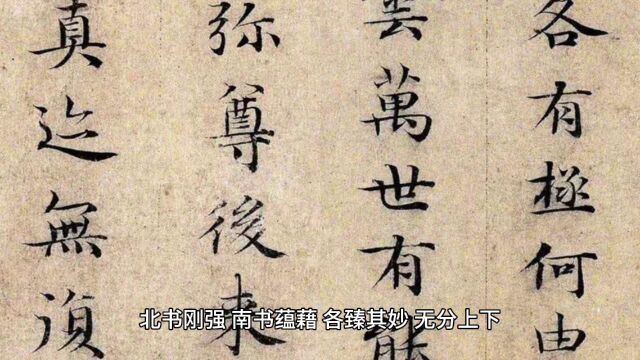 各有極何由
雲萬世有能
弥尊後来
真迹無須
北书刚强 南书蕴藉 各臻其妙 无分上下